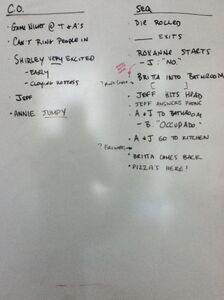 C.O.
• GAME NIGHT @ T & A'S
• CAN'T RING PEOPLE IN
• SHIRLEY VERY EXCITED
- EARLY
- CLOYING HOSTESS
• JEFF
• ANNIE JUMPY
SEQ
• DIE ROLLED
• ____ EXITS
• ROXANNE STARTS
- J: "NO."
• BRITTA INTO BATHROOM
• JEFF HITS HEAD
• JEFF ANSWERS PHONE
• A & J TO BATHROOM
- B: "OCCUPADO"
• A & J GO TO KITCHEN
• BRITTA COMES BACK
• PIZZA'S HERE!